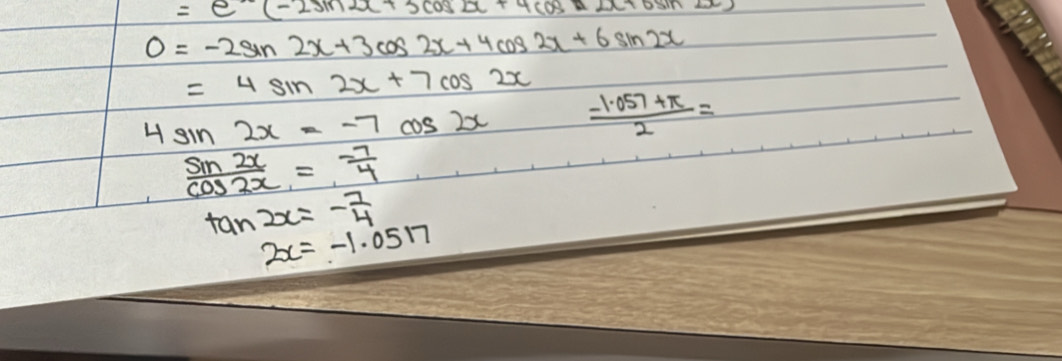 = e (-2sin 2x + 3cos 2x + 4cos 2x + 6sin 2x)
0 = -2sin 2x + 3cos 2x + 4cos 2x + 6 sin 2x
= 4 sin 2x + 7 cos 2x
4 sin 2x = -7 cos 2x
(-1.057 + π)/2 =
sin 2x / cos 2x = -7/4
tan 2x = -7/4
2x = -1.0517